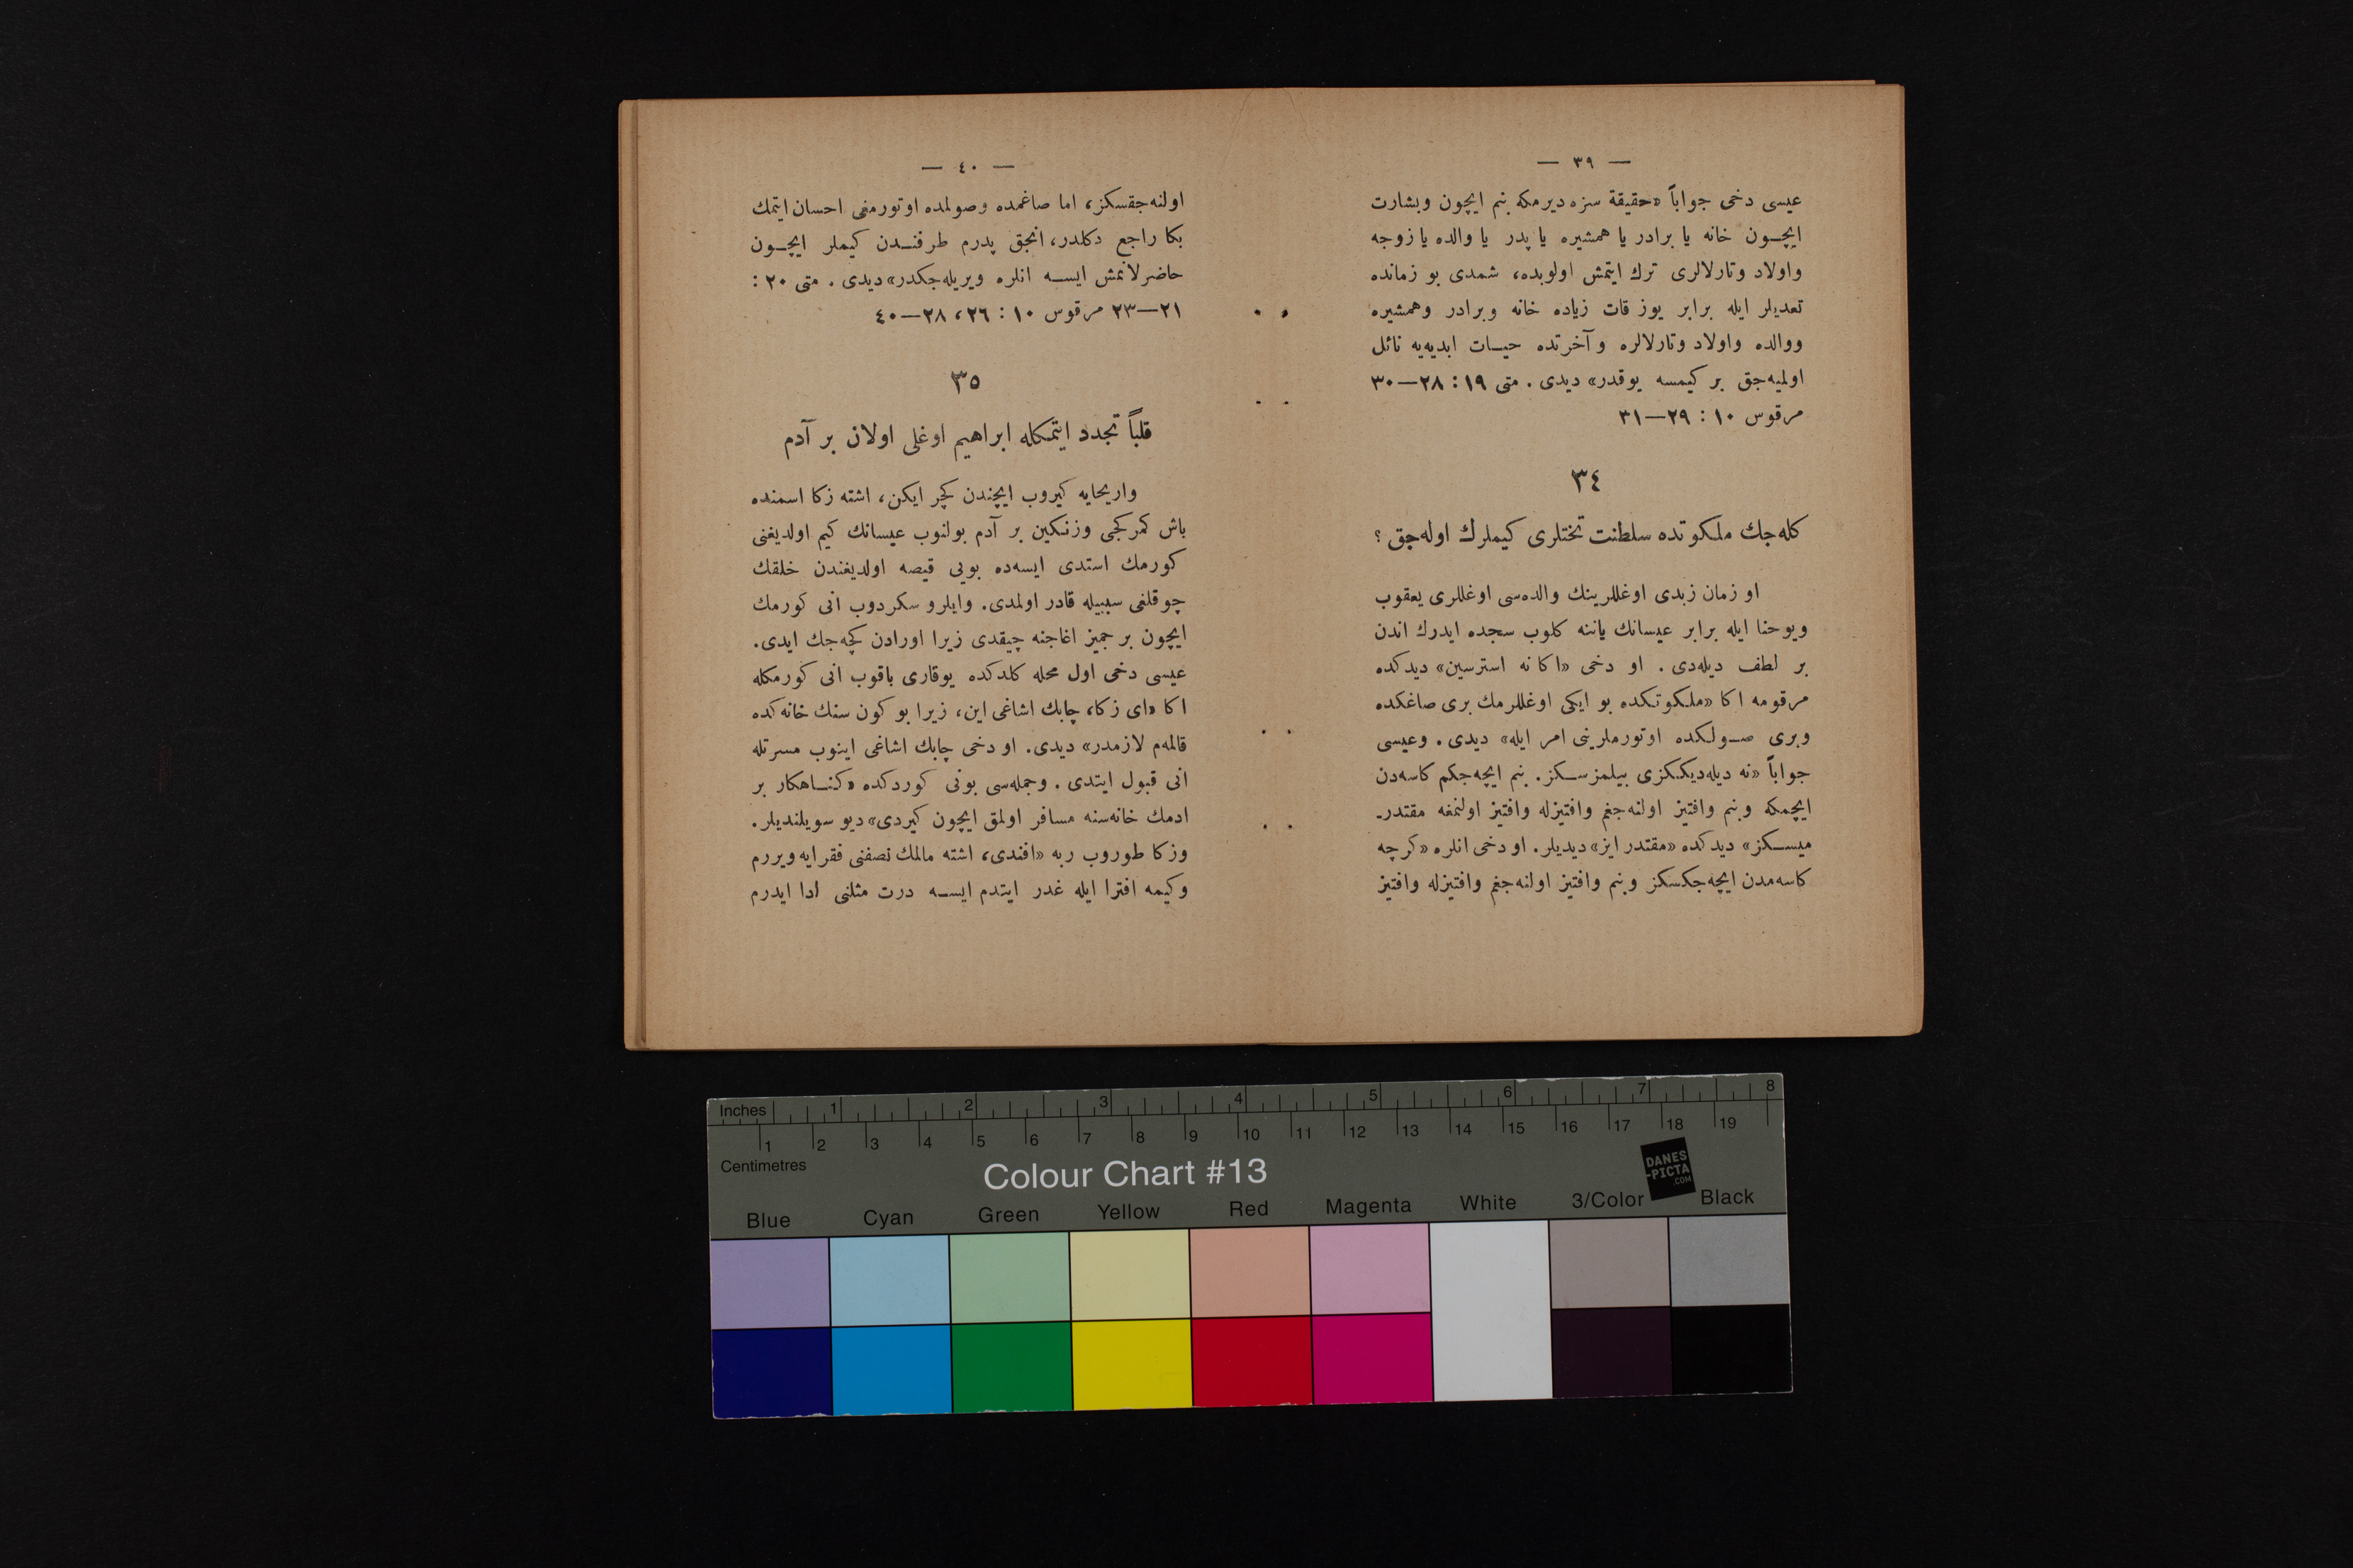 — ٣٩ —
عیسی دخی جواباً «حقیقة سزه دیرمکه بنم ایچون وبشارت
ایچــون خانه یا برادر یا همشیره یا پدر یا والده یا زوجه
واولاد وتارلالری ترك ایتمش اولوبده، شمدی بو زمانده
تعدیلر ایله برابر یوز قات زیاده خانه وبرادر وهمشیره
ووالده واولاد وتارلالره و آخرتده حیــات ابدیه‌یه نائل
اولمیه‌جق بر کیمسه یوقدر» دیدی . متی ١٩ : ٢٨—٣٠
مرقوس ١٠ : ٢٩—٣١
٣٤
کله‌جك ملکوتده سلطنت تختلری کیملرك اوله‌جق ؟
او زمان زبدی اوغللرینك والده‌سی اوغللری یعقوب
ویوحنا ایله برابر عیسانك یاننه کلوب سجده ایدرك اندن
بر لطف دیله‌دی . او دخی «اکا نه استرسین» دیدکده
مرقومه اکا «ملکوتکده بو ایکی اوغللرمك بری صاغکده
وبری صــولکده اوتورملرینی امر ایله» دیدی . وعیسی
جواباً «نه دیله‌دیککزی بیلمزســکز. بنم ایچه‌جکم کاسه‌دن
ایچمکه وبنم وافتیز اولنه‌جغم وافتیزله وافتیز اولنمغه مقتدر-
میســکز» دیدکده «مقتدر ایز» دیدیلر. او دخی انلره «کرچه
کاسه‌مدن ایچه‌جکسکز وبنم وافتیز اولنه‌جغم وافتیزله وافتیز
— ٤٠ —
اولنه‌جقسکز، اما صاغمده وصولمده اوتورمغی احسان ایتمك
بکا راجع دکلدر، انجق پدرم طرفنــدن کیملر ایچــون
حاضرلانمش ایســه انلره ویریله‌جکدر» دیدی . متی ٢٠ :
٢١—٢٣ مرقوس ١٠ : ٢٦، ٢٨—٤٠
٣٥
قلباً تجدد ایتمکله ابراهیم اوغلی اولان بر آدم
واریحایه کیروب ایچندن کچر ایکن، اشته زکا اسمنده
باش کمرکجی وزنکین بر آدم بولنوب عیسانك کیم اولدیغنی
کورمك استدی ایسه‌ده بویی قیصه اولدیغندن خلقك
چوقلغی سببیله قادر اولمدی. وایلرو سکردوب انی کورمك
ایچون بر جمیز اغاجنه چیقدی زیرا اورادن کچه‌جك ایدی.
عیسی دخی اول محله کلدکده یوقاری باقوب انی کورمکله
اکا «ای زکا، چابك اشاغی این، زیرا بو کون سنك خانه‌کده
قالمه‌م لازمدر» دیدی. او دخی چابك اشاغی اینوب مسرتله
انی قبول ایتدی . وجمله‌سی بونی کوردکده «کنــاهکار بر
ادمك خانه‌سنه مسافر اولمق ایچون کیردی» دیو سویلندیلر.
وزکا طوروب ربه «افندی، اشته مالمك نصفنی فقرایه ویررم
وکیمه افترا ایله غدر ایتدم ایســه درت مثلنی ادا ایدرم
Inches 1 2 3 4 5 6 7 8
1 2 3 4 5 6 7 8 9 10 11 12 13 14 15 16 17 18 19
Centimetres
Colour Chart #13
DANES
-PICTA
.COM
Blue Cyan Green Yellow Red Magenta White 3/Color Black